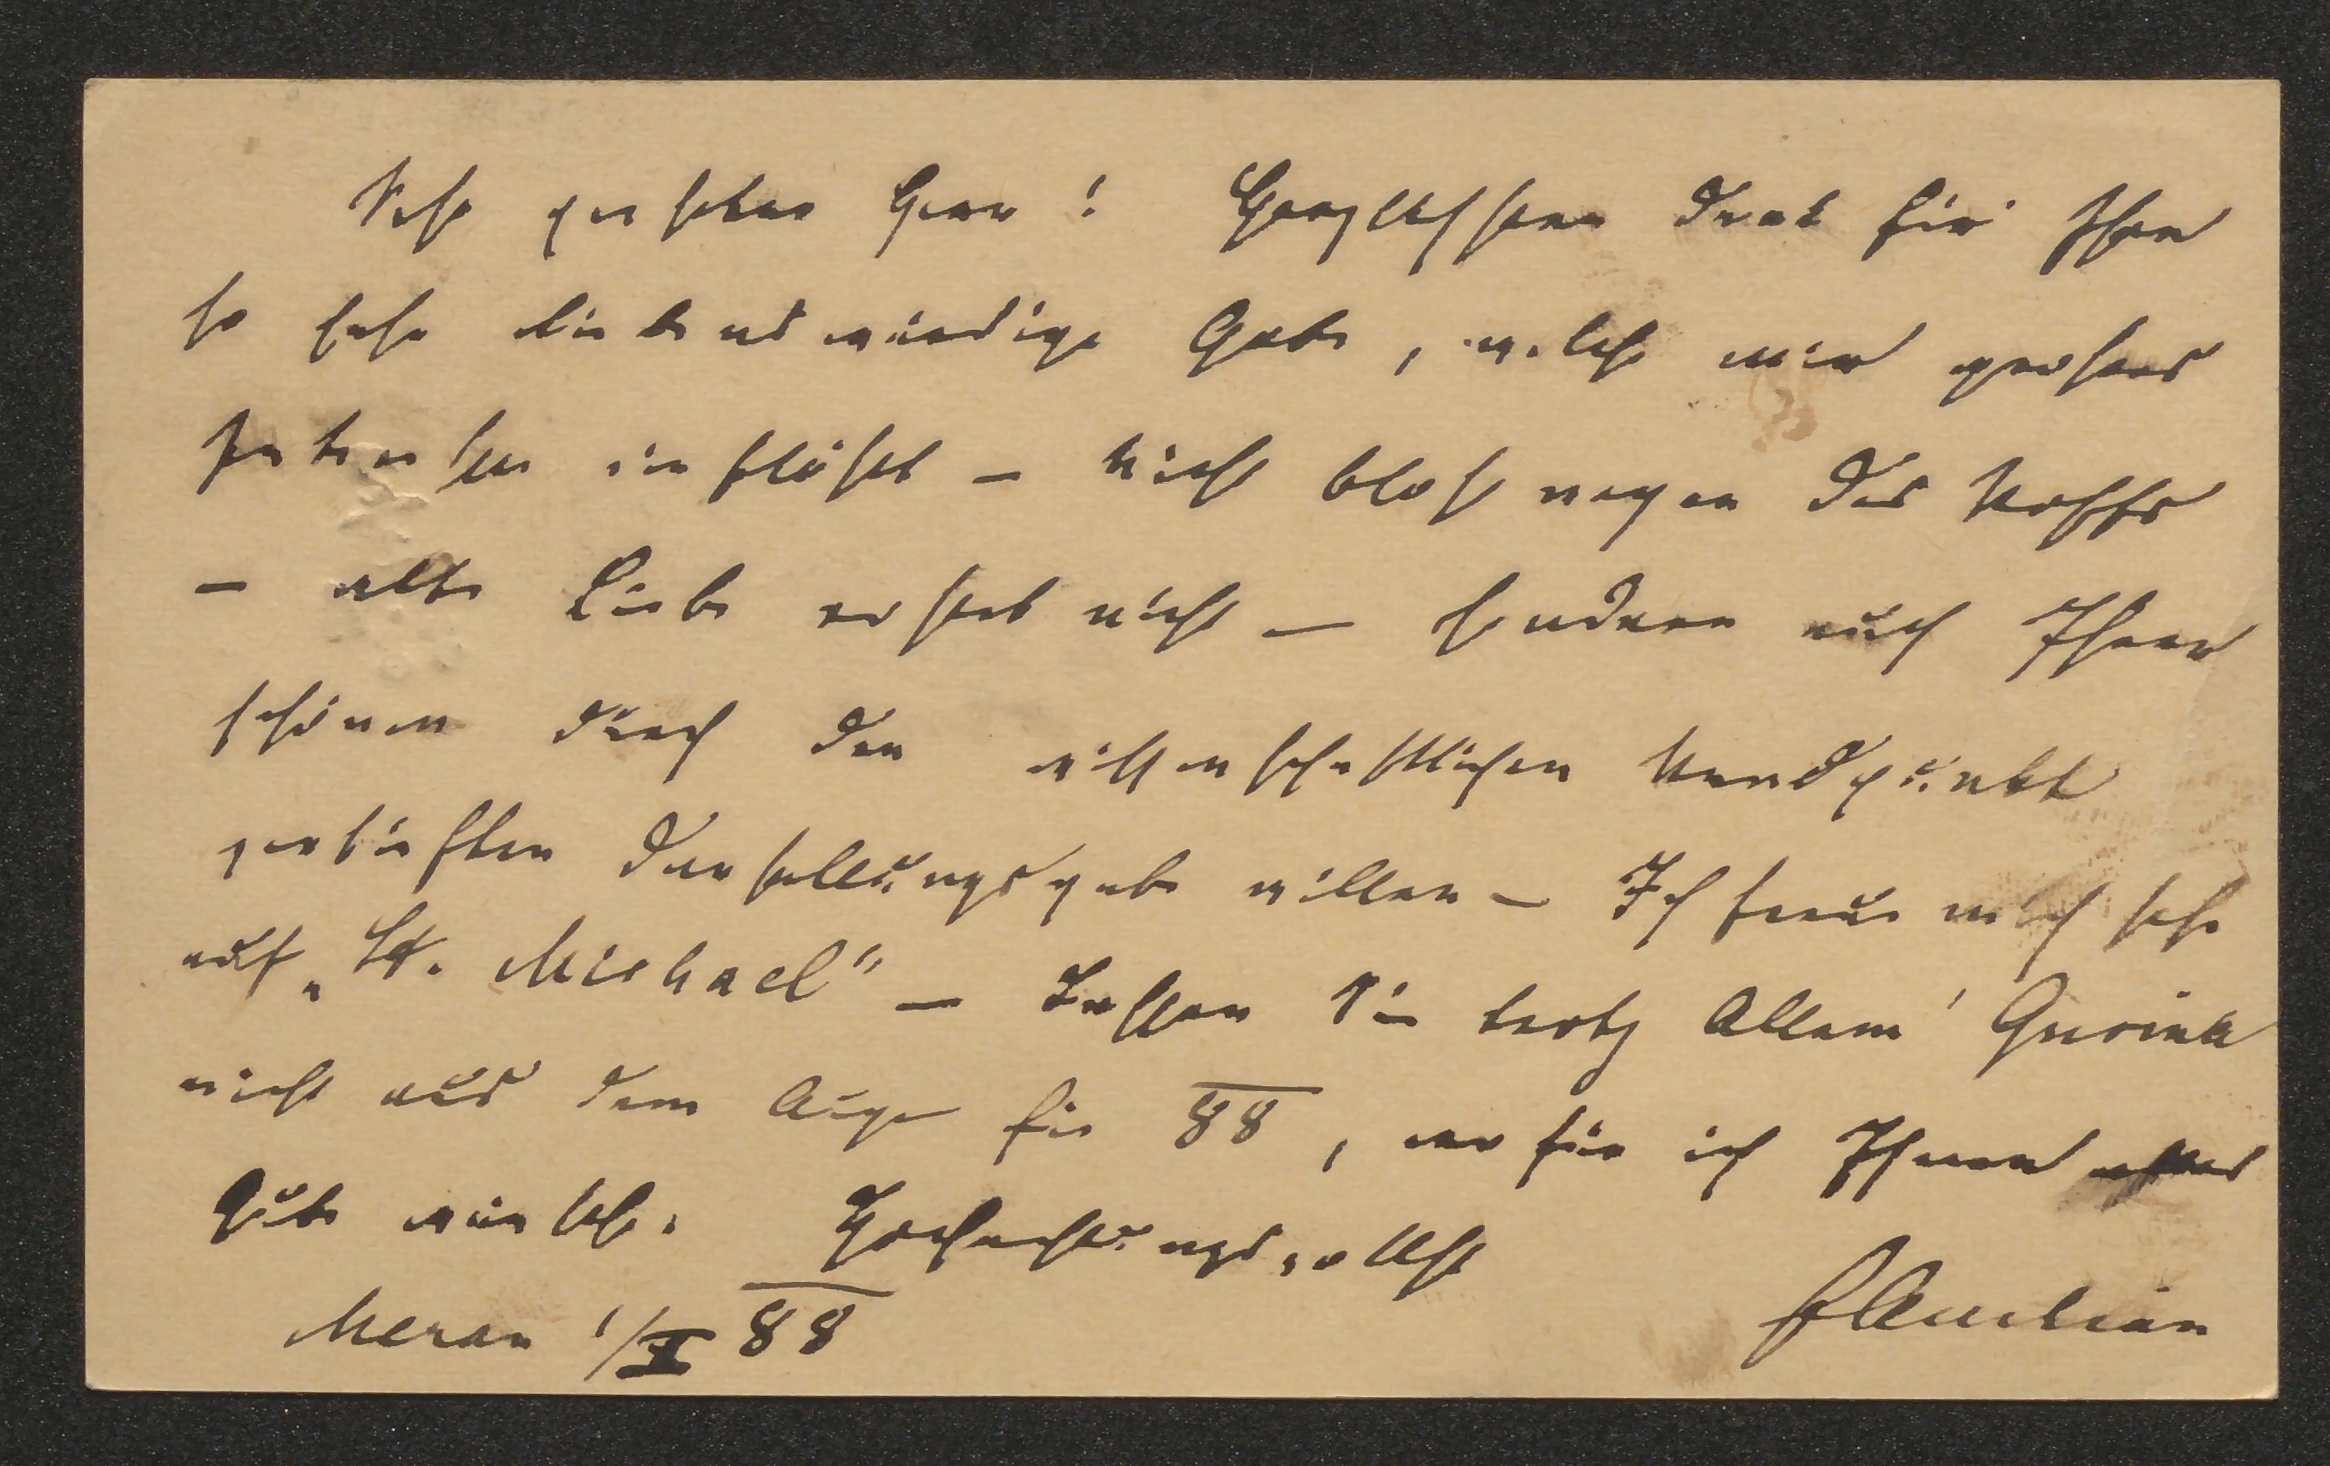 Sehr geehrter Herr! Herzlichsten Dank für Ihre
so sehr liebenswürdige Gabe, welche mir großes
Interesse einflößt – nicht bloß wegen des Stoffes
– alte Liebe rostet nicht – sondern auch Ihrer
schönen durch den wissenschaftlichen Standpunkt
vertieften Darstellungsgabe willen – Ich freue mich sehr
auf „St. Michael“ – Lassen Sie trotz Allem Gurina
nicht aus dem Auge für 88, wofür ich Ihnen alles
Gute wünsche. Hochachtungsvollst
Meran 1/X 88